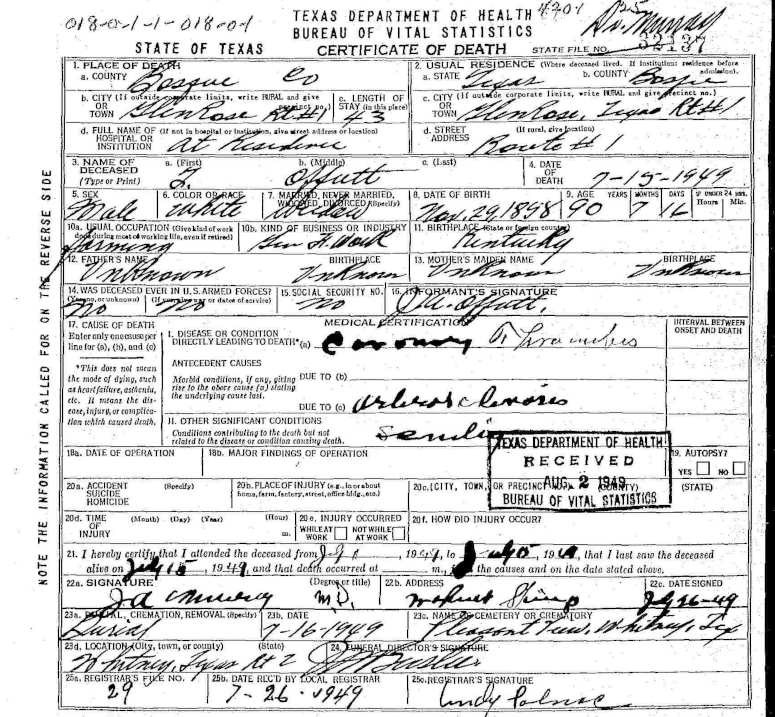 018-0-1-1-018-01
TEXAS DEPARTMENT OF HEALTH
4201
25
Dr. Murray
BUREAU OF VITAL STATISTICS
STATE OF TEXAS
CERTIFICATE OF DEATH
STATE FILE NO. 32137
1. PLACE OF DEATH
a. COUNTY Bosque Co
2. USUAL RESIDENCE (Where deceased lived. If institution: residence before admission).
a. STATE Texas b. COUNTY Bosque
b. CITY (If outside corporate limits, write RURAL and give precinct no.)
OR TOWN Glen Rose Rt #1
c. LENGTH OF STAY (in this place) 43
c. CITY (If outside corporate limits, write RURAL and give precinct no.)
OR TOWN Glen Rose, Texas Rt #1
d. FULL NAME OF (If not in hospital or institution, give street address or location)
HOSPITAL OR INSTITUTION At Residence
d. STREET ADDRESS (If rural, give location)
Route # 1
3. NAME OF DECEASED (Type or Print)
a. (First) b. (Middle) c. (Last)
Offutt
4. DATE OF DEATH 7-15-1949
5. SEX Male
6. COLOR OR RACE White
7. MARRIED, NEVER MARRIED, WIDOWED, DIVORCED (Specify)
8. DATE OF BIRTH Nov. 29, 1858
9. AGE YEARS MONTHS DAYS IF UNDER 24 HRS. Hours Min.
90 7 16
10a. USUAL OCCUPATION (Give kind of work done during most of working life, even if retired)
Farming
10b. KIND OF BUSINESS OR INDUSTRY
Gen F. Work
11. BIRTHPLACE (State or foreign country)
Kentucky
12. FATHER'S NAME BIRTHPLACE
Unknown Unknown
13. MOTHER'S MAIDEN NAME BIRTHPLACE
Unknown Unknown
14. WAS DECEASED EVER IN U.S. ARMED FORCES?
(Yes, no, or unknown) (If yes, give war or dates of service)
No No
15. SOCIAL SECURITY NO.
No
16. INFORMANT'S SIGNATURE
Offutt.
17. CAUSE OF DEATH
Enter only one cause per line for (a), (b), and (c)
MEDICAL CERTIFICATION
INTERVAL BETWEEN ONSET AND DEATH
I. DISEASE OR CONDITION DIRECTLY LEADING TO DEATH* (a) Coronary Thrombosis
*This does not mean the mode of dying, such as heart failure, asthenia, etc. It means the disease, injury, or complication which caused death.
ANTECEDENT CAUSES
Morbid conditions, if any, giving rise to the above cause (a) stating the underlying cause last.
DUE TO (b)
DUE TO (c) Arteriosclerosis
II. OTHER SIGNIFICANT CONDITIONS
Conditions contributing to the death but not related to the disease or condition causing death.
TEXAS DEPARTMENT OF HEALTH
RECEIVED
AUG 2 1949
BUREAU OF VITAL STATISTICS
18a. DATE OF OPERATION
18b. MAJOR FINDINGS OF OPERATION
19. AUTOPSY?
YES NO
20a. ACCIDENT SUICIDE HOMICIDE (Specify)
20b. PLACE OF INJURY (e.g., in or about home, farm, factory, street, office bldg., etc.)
20c. (CITY, TOWN, OR PRECINCT NO.) (COUNTY) (STATE)
20d. TIME OF INJURY (Month) (Day) (Year) (Hour) m.
20e. INJURY OCCURRED
WHILE AT WORK NOT WHILE AT WORK
20f. HOW DID INJURY OCCUR?
21. I hereby certify that I attended the deceased from , 1949, to July 15, 1949, that I last saw the deceased
alive on July 15, 1949, and that death occurred at m., the causes and on the date stated above.
22a. SIGNATURE (Degree or title)
J A Murray M.D.
22b. ADDRESS
Walnut Springs
22c. DATE SIGNED
July 26-49
23a. BURIAL, CREMATION, REMOVAL (Specify)
Burial
23b. DATE
7-16-1949
23c. NAME OF CEMETERY OR CREMATORY
Pleasant View, Whitney, Tex
23d. LOCATION (City, town, or county) (State)
Whitney, Texas Rt 2
24. FUNERAL DIRECTOR'S SIGNATURE
25a. REGISTRAR'S FILE NO.
29
25b. DATE REC'D BY LOCAL REGISTRAR
7-26-1949
25c. REGISTRAR'S SIGNATURE
NOTE THE INFORMATION CALLED FOR ON THE REVERSE SIDE